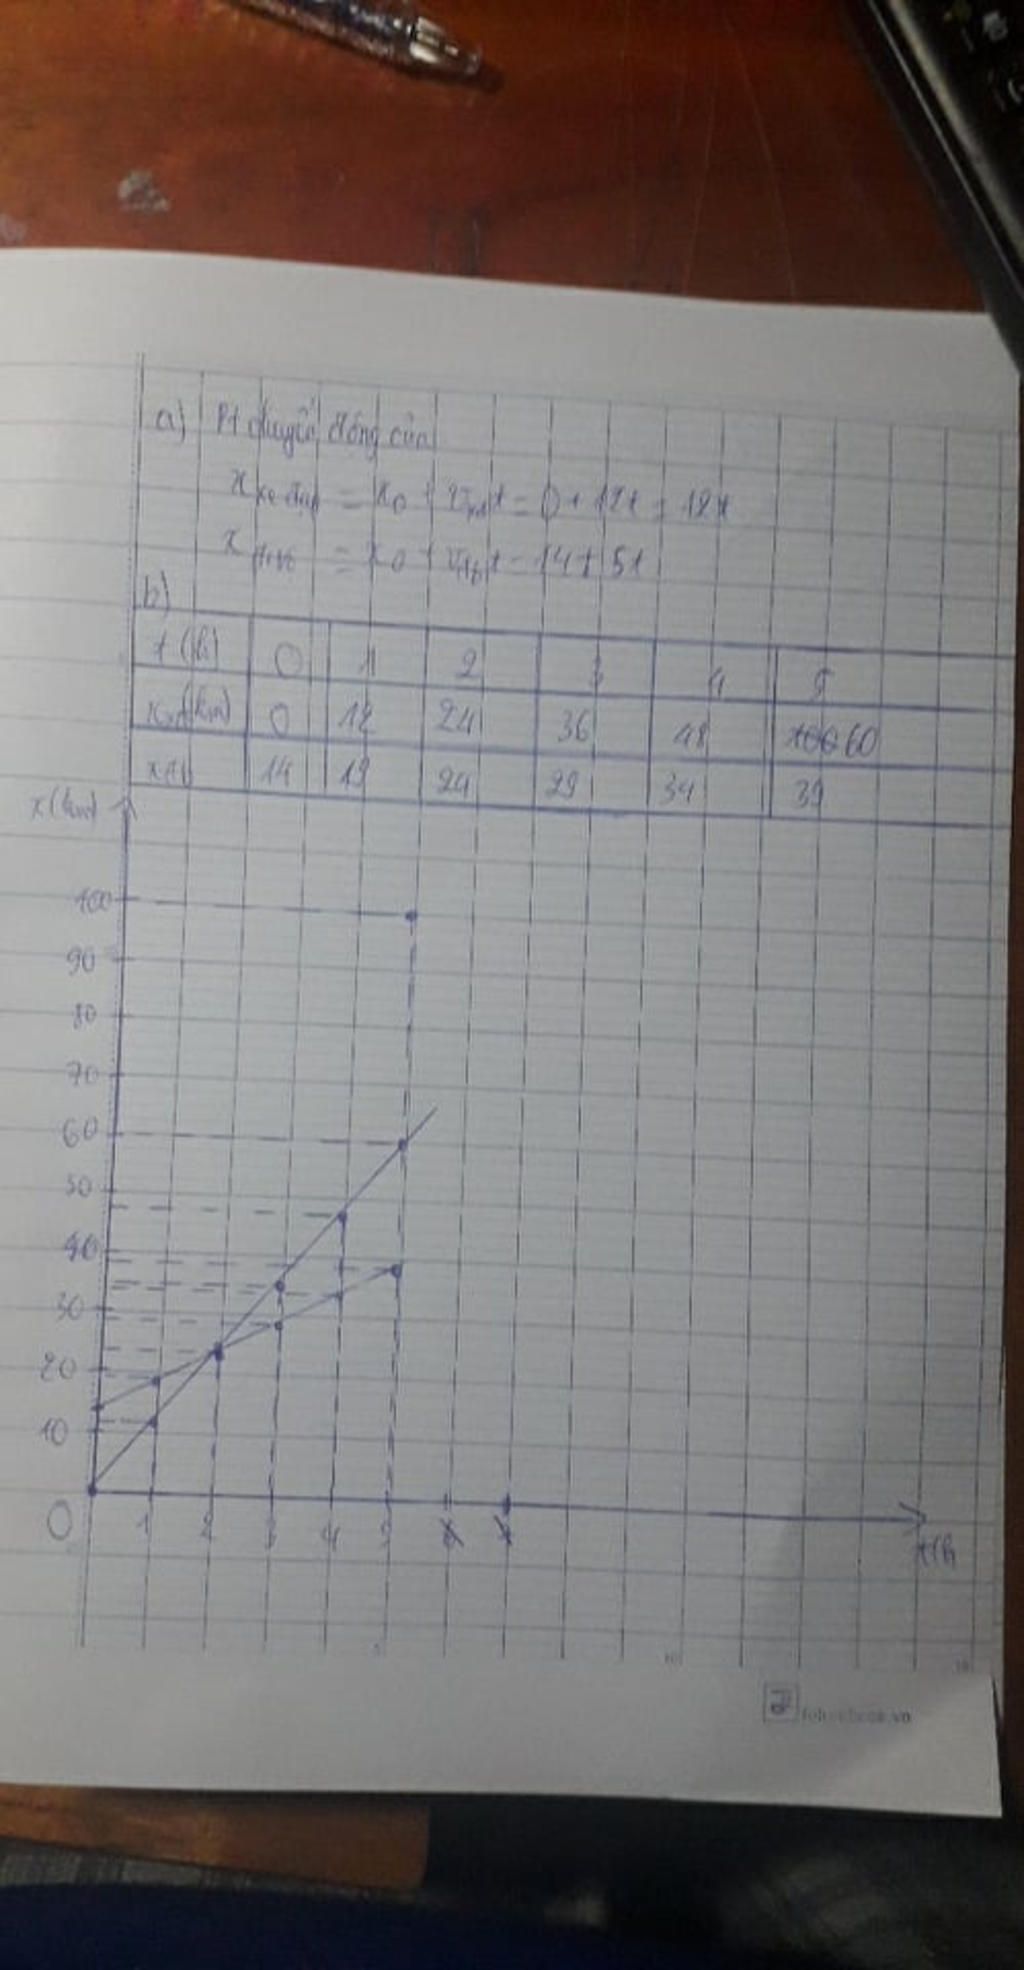 a) Pt chuyển động của
x xe đạp = x0 + vxđ t = 0 + 12t = 12t
x = x0 + v t = 14 + 5t
b)
t (h) 0 1 2 3 4 5
xxđ (km) 0 12 24 36 48 60
14 19 24 29 34 39
x (km)
100
90
80
70
60
50
40
30
20
10
0 1 2 3 4 5
t(h